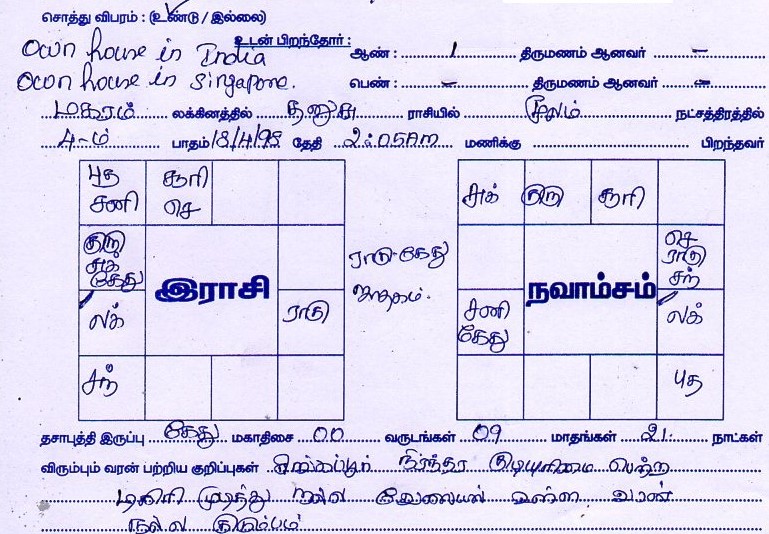 சொத்து விபரம் : (உண்டு / இல்லை)
Own house in India
உடன் பிறந்தோர் : ஆண் : 1 திருமணம் ஆனவர் –
Own house in Singapore.
பெண் : – திருமணம் ஆனவர் –
மகரம் லக்கினத்தில் தனுசு ராசியில் மூலம் நட்சத்திரத்தில்
4-ம் பாதம் 18/4/98 தேதி 2:05AM மணிக்கு பிறந்தவர்
புத சூரி
சனி செ
குரு
சுக்
கேது
இராசி
லக் ராகு
சந்
ராகு-கேது
ஜாதகம்.
சுக் குரு சூரி
செ
ராகு
சந்
நவாம்சம்
சனி லக்
கேது
புத
தசாபுத்தி இருப்பு கேது மகாதிசை 00 வருடங்கள் 09 மாதங்கள் 21 நாட்கள்
விரும்பும் வரன் பற்றிய குறிப்புகள் சிங்கப்பூர் நிரந்தர குடியுரிமை பெற்ற
டிகிரி முடித்து நல்ல வேலையில் உள்ள வரன்
நல்ல குடும்பம்